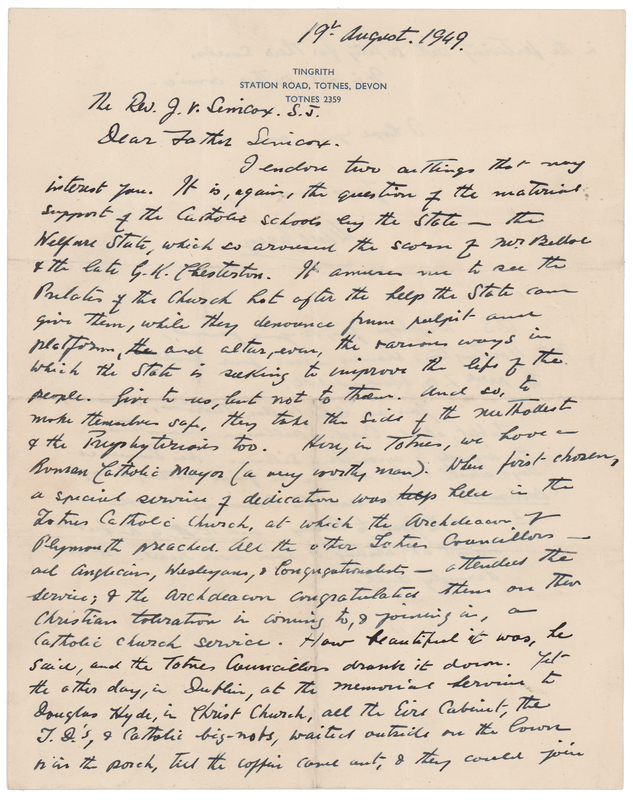 19th August. 1949.
TINGRITH
STATION ROAD, TOTNES, DEVON
TOTNES 2359
The Rev. J. V. Simcox. S.J.
Dear Father Simcox.
I enclose two cuttings that may
interest you. It is, again, the question of the material
support of the Catholic schools by the State — the
Welfare State, which so aroused the scorn of Mr Belloc
& the late G.K. Chesterton. It amuses me to see the
Prelates of the Church hot after the help the State can
give them, while they denounce from pulpit and
platform, the and altar, even, the various ways in
which the State is seeking to improve the life of the
people. Give to us, but not to them. And so, to
make themselves safe, they take the side of the Methodists
& the Presbyterians too. Here, in Totnes, we have a
Roman Catholic Mayor (a very worthy man). When first chosen,
a special service of dedication was held in the
Totnes Catholic Church, at which the Archdeacon of
Plymouth preached. All the other Totnes Councillors —
all Anglicans, Wesleyans, & Congregationalists — attended the
service; & the Archdeacon congratulated them on their
Christian toleration in coming to, & joining in, a
Catholic church service. How beautiful it was, he
said, and the Totnes Councillors drank it down. Yet
the other day, in Dublin, at the memorial service to
Douglas Hyde, in Christ Church, all the Eire Cabinet, the
T.D.'s, & Catholic big-nobs, waited outside on the lawn
or in the porch, till the coffin came out, & they could join